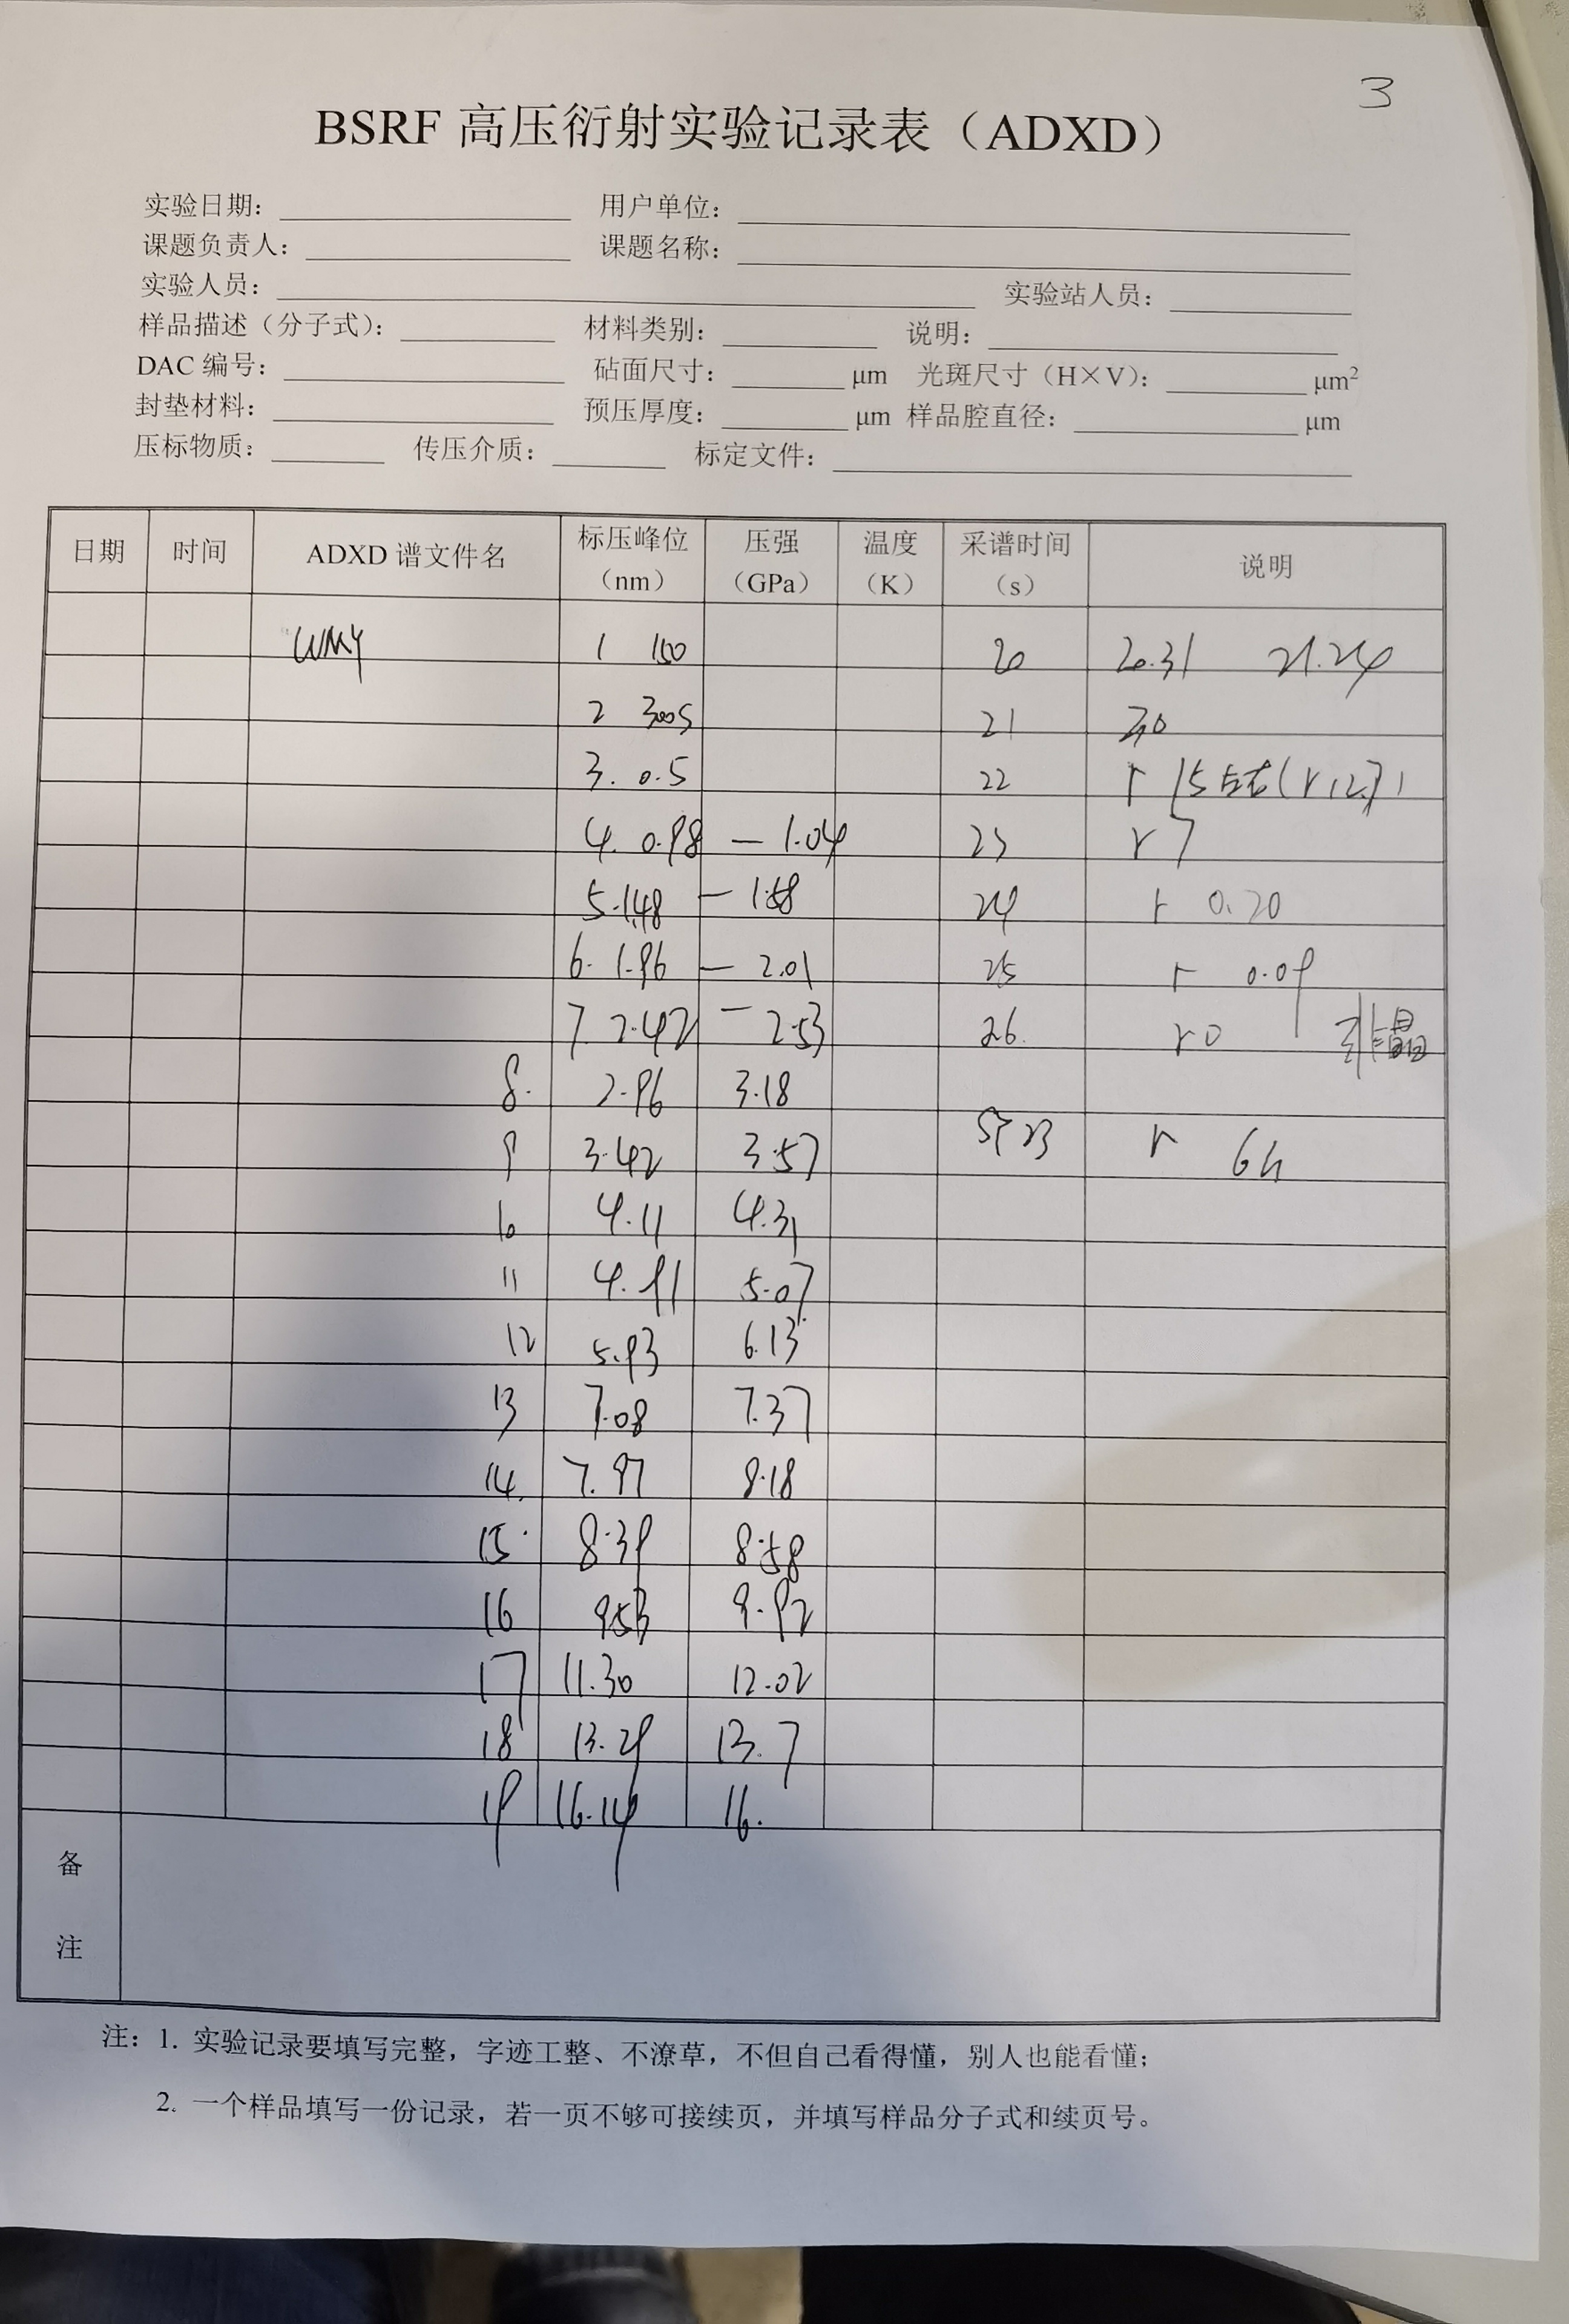 3
BSRF 高压衍射实验记录表（ADXD）
实验日期： 用户单位：
课题负责人： 课题名称：
实验人员： 实验站人员：
样品描述（分子式）： 材料类别： 说明：
DAC 编号： 砧面尺寸： μm 光斑尺寸（H×V）： μm²
封垫材料： 预压厚度： μm 样品腔直径： μm
压标物质： 传压介质： 标定文件：
日期 时间 ADXD 谱文件名 标压峰位（nm） 压强（GPa） 温度（K） 采谱时间（s） 说明
WMY 1 20 20.31 21.24
2 300s 21
3. 0.5 22 r 15左右
4. 0.98 — 1.04 23 r 7
5. 1.48 — 1.58 24 r 0.20
6. 1.96 — 2.01 25 r 0.09
7 2.42 — 2.53 26. r 0 非晶
8. 2.96 3.18
9 3.42 3.57 r 6h
10 4.11 4.31
11 4.91 5.07
12 5.93 6.13
13 7.08 7.37
14. 7.97 8.18
15 8.39 8.58
16 9.53 9.92
17 11.30 12.02
18 13.29 13.7
19 16.14 16.
备注
注：1. 实验记录要填写完整，字迹工整、不潦草，不但自己看得懂，别人也能看懂；
2. 一个样品填写一份记录，若一页不够可接续页，并填写样品分子式和续页号。